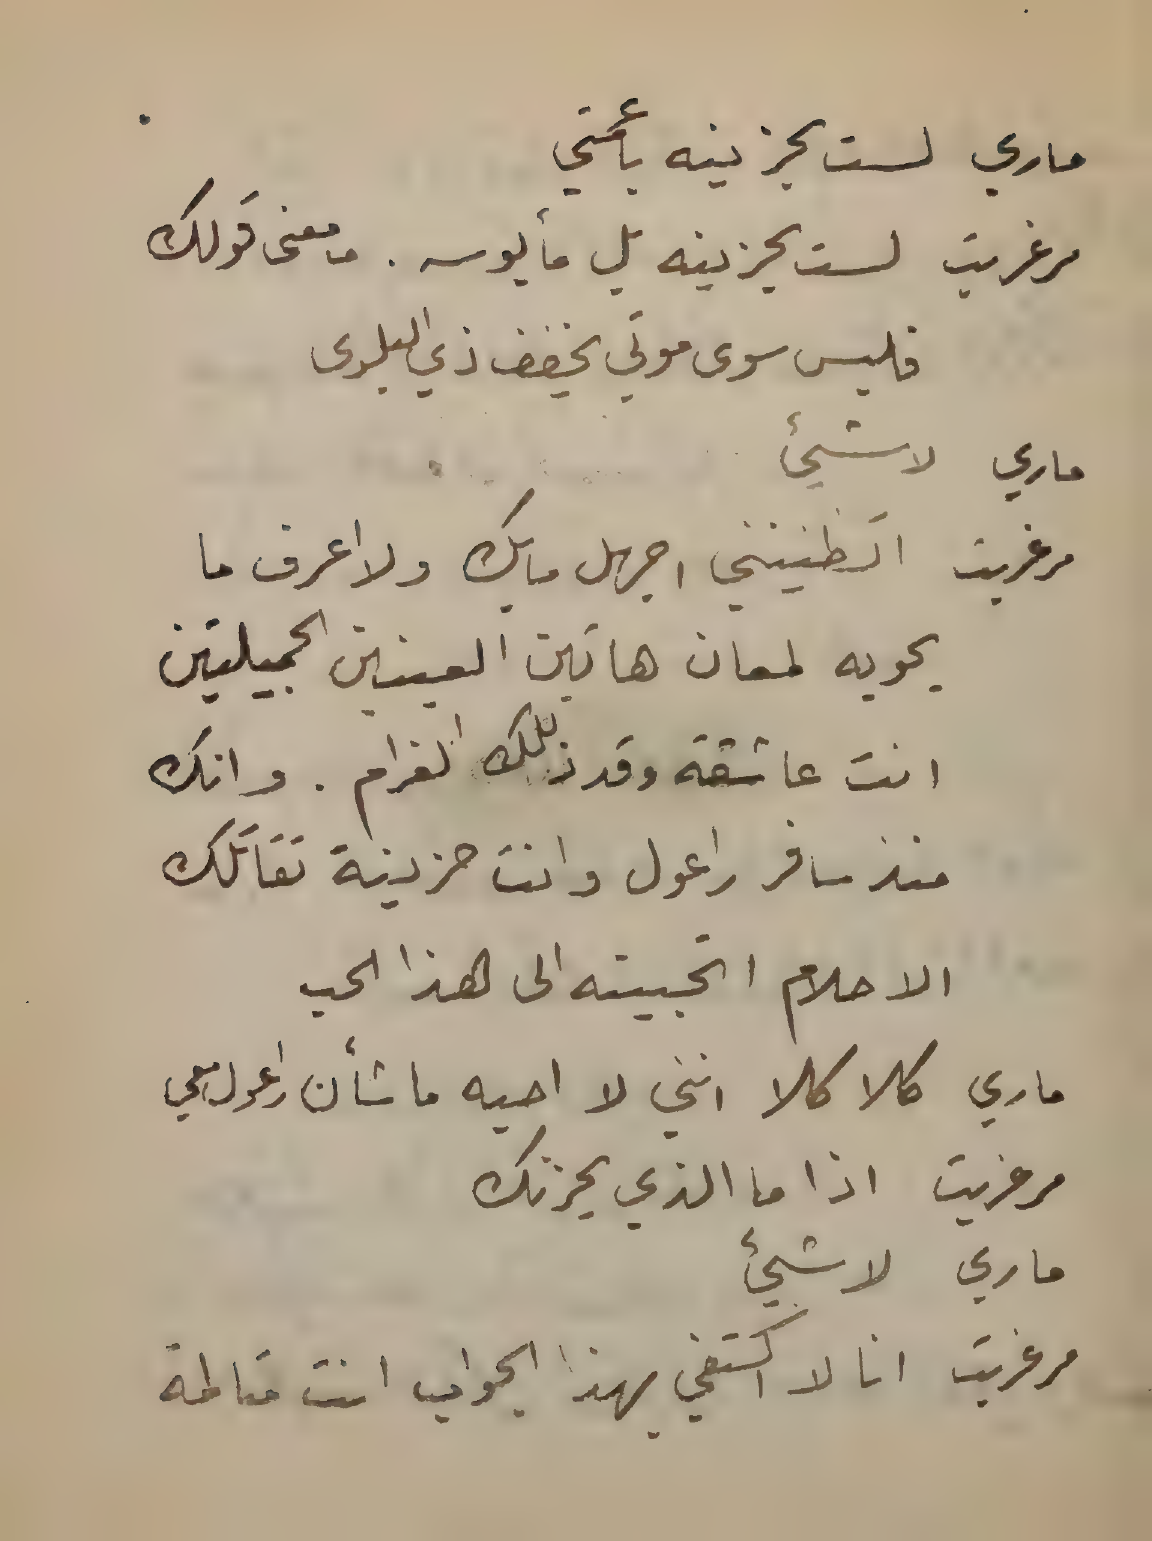 ماري لست بحزينه يا عمتي
مرغريت لست بحزينه بل مأيوسه . ما معنى قولك
فليس سوى موتي يخفف ذي البلوى
ماري لا شيئ
مرغريت اتظنينني اجهل ما بك ولا اعرف ما
يحويه لمعان هاتين العينين الجميلتين
انت عاشقة وقد ذللك الغرام . وانك
منذ سافر راعول وانت حزينة تقاتلك
الاحلام اتجبيته الى لهذا الحب
ماري كلا كلا انني لا احبه ما شأن راعول معي
مرغريت اذا ما الذي يحزنك
ماري لا شيئ
مرغريت انا لا اكتفي بهذا الجواب انت